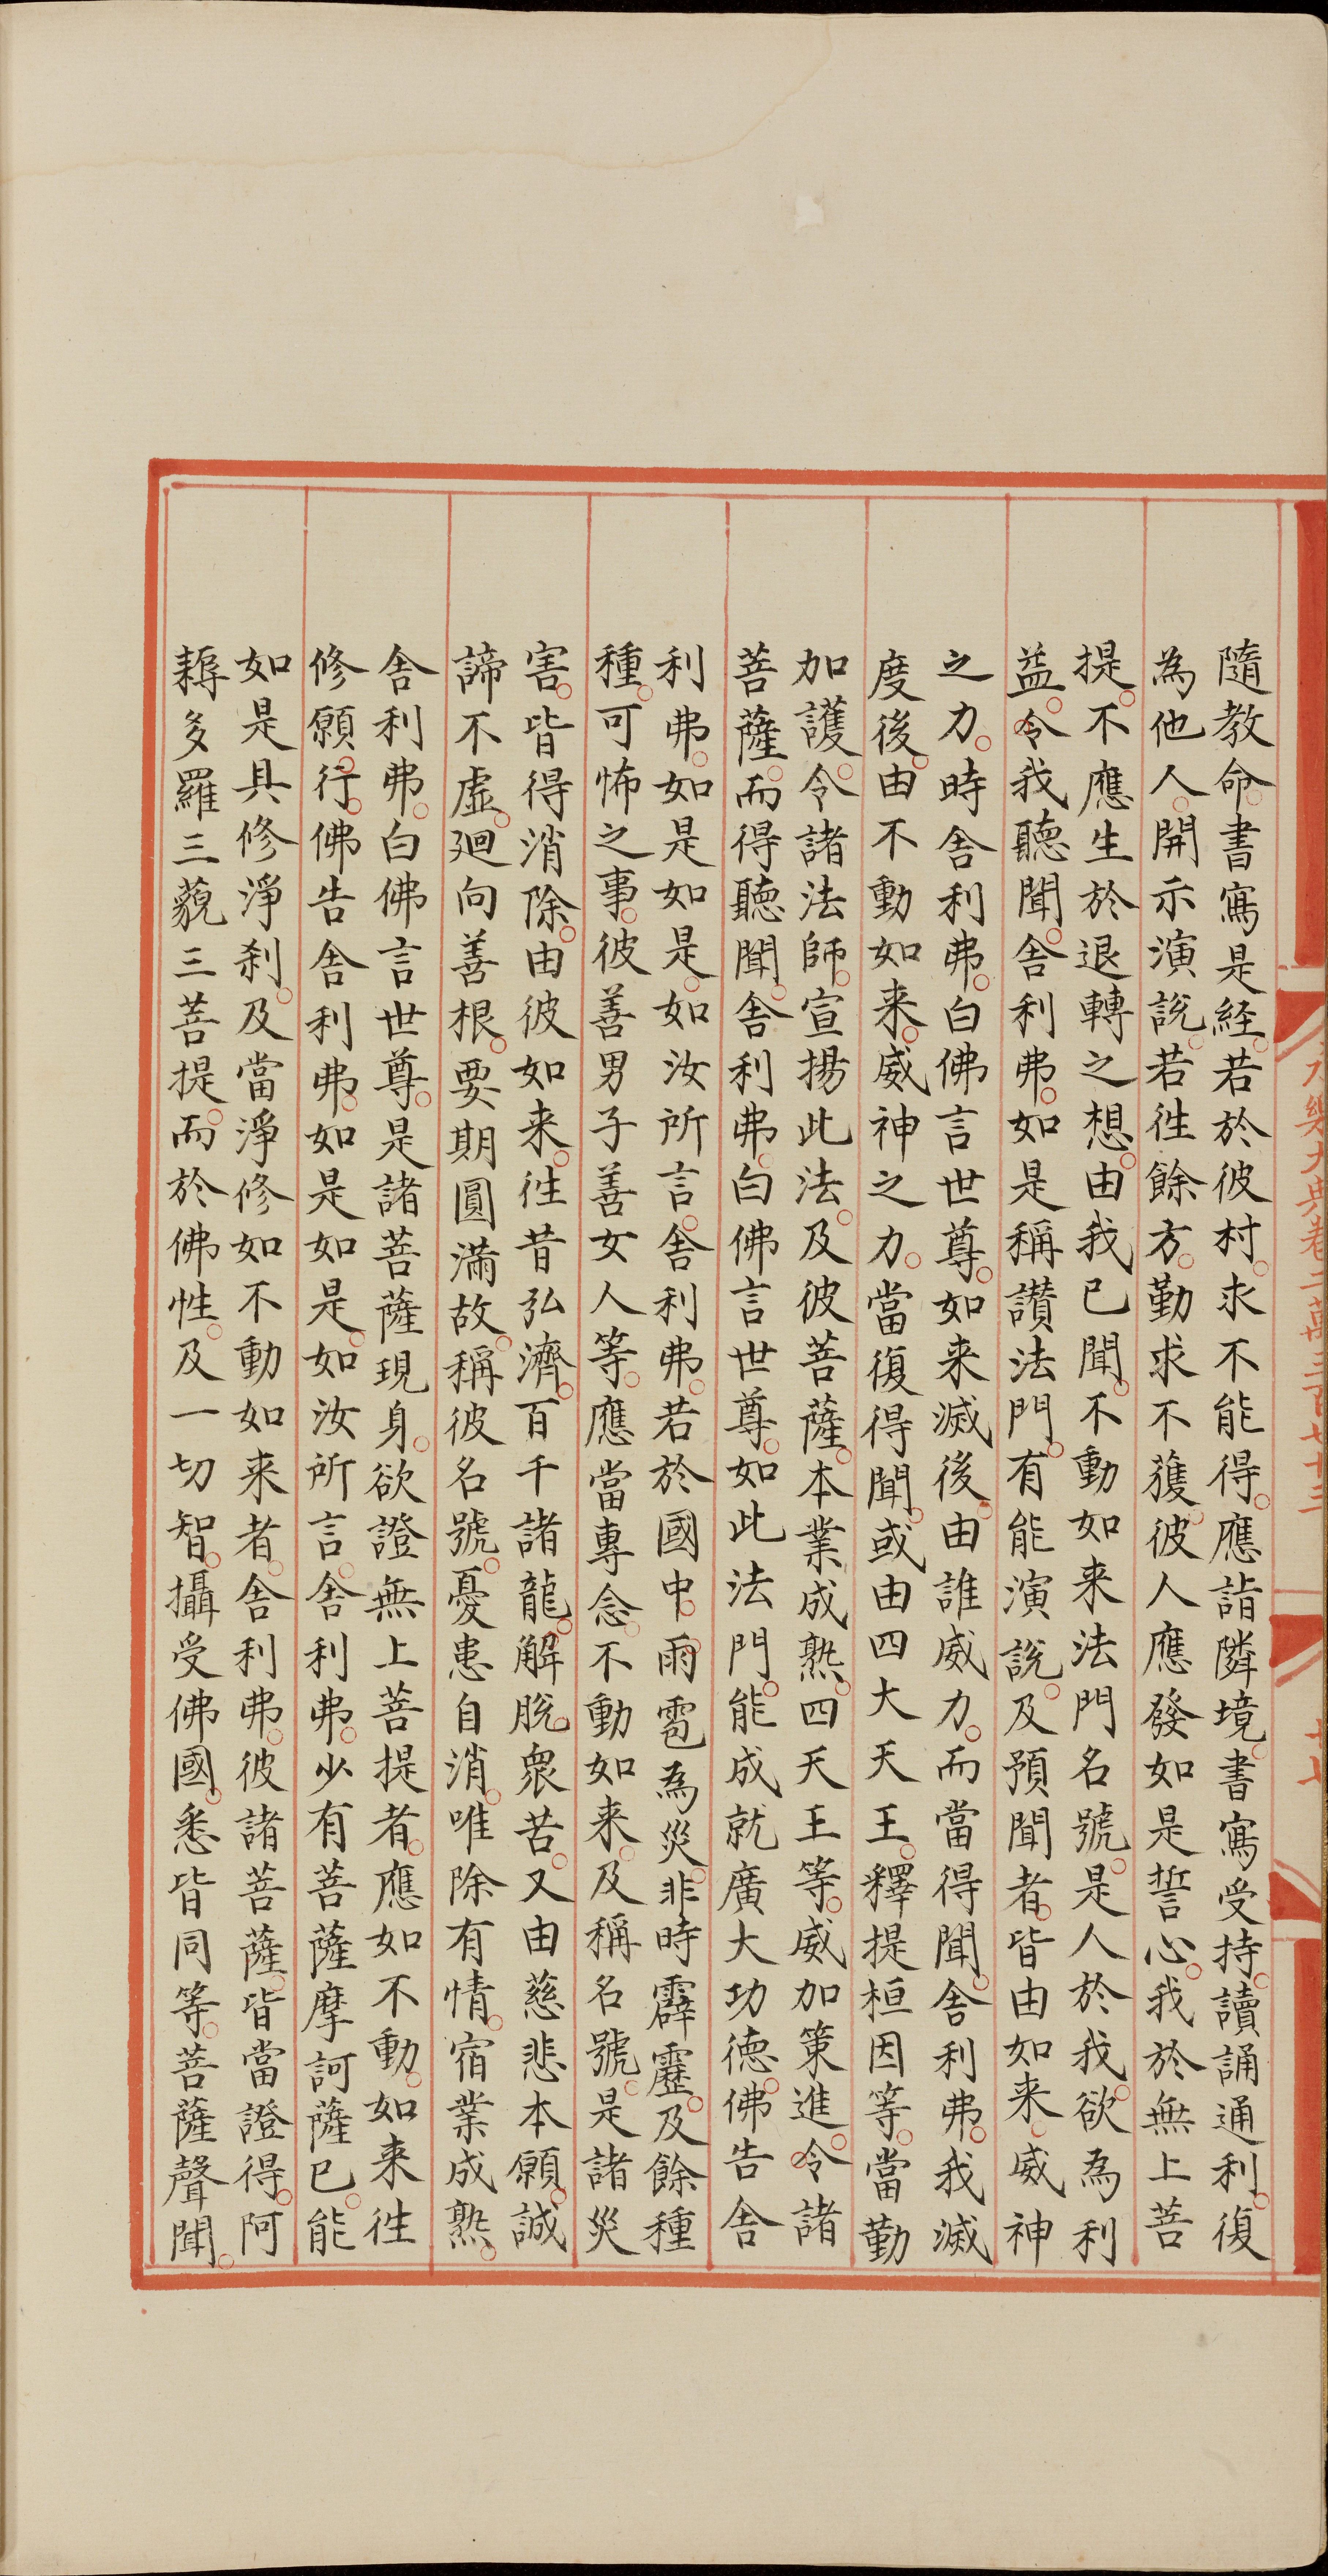 隨教命書寫是経若於彼村求不能得應詣隣境書寫受持讀誦通利復
為他人開示演說若徃餘方勤求不獲彼人應發如是誓心我於無上菩
提不應生於退轉之想由我已聞不動如来法門名號是人於我欲為利
益令我聽聞舎利弗如是稱讃法門有能演說及預聞者皆由如来威神
之力時舎利弗白佛言世尊如来滅後由誰威力而當得聞舎利弗我滅
度後由不動如来威神之力當復得聞或由四大天王釋提桓因等當勤
加護令諸法師宣揚此法及彼菩薩本業成熟四天王等威加策進令諸
菩薩而得聽聞舎利弗白佛言世尊如此法門能成就廣大功徳佛告舎
利弗如是如是如汝所言舎利弗若於國中雨雹為災非時霹靂及餘種
種可怖之事彼善男子善女人等應當專念不動如来及稱名號是諸災
害皆得消除由彼如来徃昔弘濟百千諸龍解脫衆苦又由慈悲本願誠
諦不虛廻向善根要期圓滿故稱彼名號憂患自消唯除有情宿業成熟
舎利弗白佛言世尊是諸菩薩現身欲證無上菩提者應如不動如来徃
修願行佛告舎利弗如是如是如汝所言舎利弗少有菩薩摩訶薩已能
如是具修淨剎及當淨修如不動如来者舎利弗彼諸菩薩皆當證得阿
耨多羅三藐三菩提而於佛性及一切智攝受佛國悉皆同等菩薩聲聞
永樂大典卷二萬三百七十三